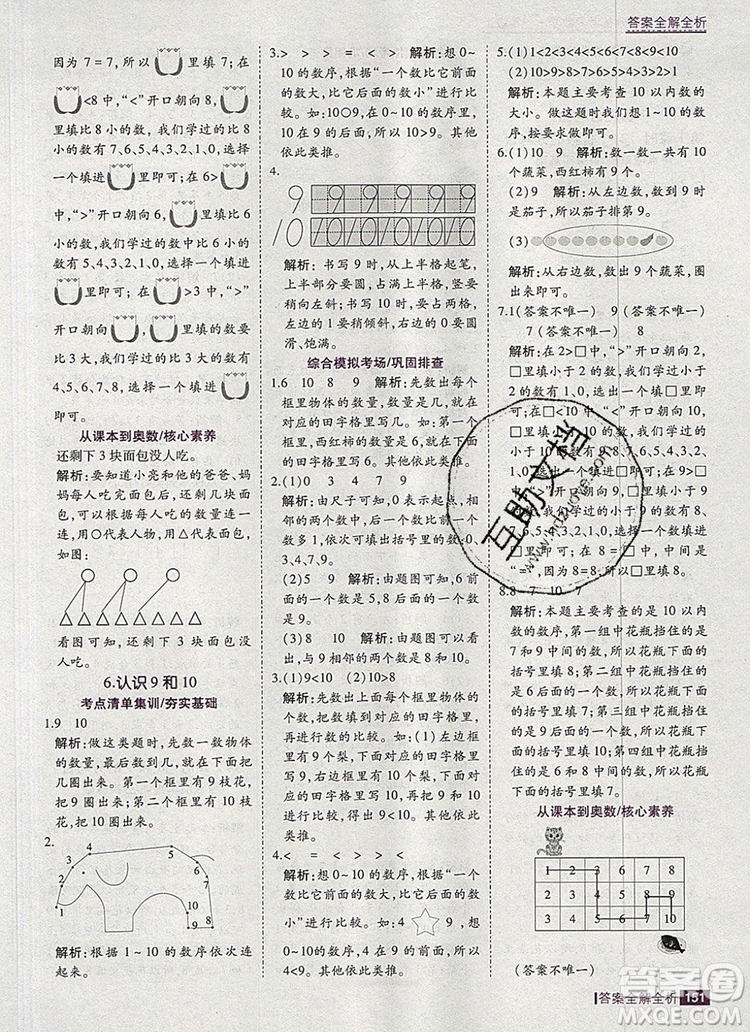 答案全解全析
因为 7 = 7，所以 里填 7；在
<8 中，“<”开口朝向 8，
里填比 8 小的数，我们学过的比 8
小的数有 7、6、5、4、3、2、1、0，任选
一个填进 里即可；在 6>
中，“>”开口朝向 6， 里填比 6
小的数，我们学过的数中比 6 小的
数有 5、4、3、2、1、0，任选一个填进
里即可；在 >3 中，“>”
开口朝向 ， 里填的数要
比 3 大，我们学过的比 3 大的数有
4、5、6、7、8，任选一个填进 里
即可。
从课本到奥数/核心素养
还剩下 3 块面包没人吃。
解析：要知道小亮和他的爸爸、妈
妈每人吃二块面包，还剩下几块面
包，用○代表面包，用△代表面包，
如图：
看图可知，还剩下 3 块面包没
人吃。
6.认识 9 和 10
考点清单集训/夯实基础
1.9 10
解析：做这类题时，先数一数物体
的数量，数量是几，就在下面的方
框里圈出来。第一个框里有 9 枝花，
圈 9 即可。第二个框里有 10 枝
花，圈 10 即可。
2.
1 2 3 4 5 6 7 8 9 10
解析：根据 1～10 的数序依次连
起来。
3.> > > = < 解析：想 0～
10 的数序，根据“一个数比它前面
的数大，比它后面的数小”进行比
较。如：10○9，在 0～10 的数序里，
10 在 9 的后面，所以 10>9。其他
依此类推。
4.
9 9 9 9 9 9
10 10 10 10 10 10
解析：书写 9 时，从上半格起笔，
上半部分要圆，下半部分竖要
稍向左斜；书写 10 时，1 从右上
角附近向左下角画斜线，0 要圆
滑、饱满。
综合模拟考场/巩固排查
1.6 10 9 解析：先数出每个
框里物体的数量，数量是几，就在
对应的田字格里写几。在第一个
框里，西红柿的数量是 6，在对应
的田字格里写 6。其他依此类推。
2.(1)0 3 4 7 9
解析：由尺子可知，0 表示起点，相
邻的两个数中，后一个数比前一个
数多 1，依次可填出方框里的数：
0、3、4、7、9。
(2)5 9 解析：由题图可知，6 前
面的一个数是 5，8 后面的一个数
是 9。
(3)8 10 9 解析：由题图可
知，与 9 相邻的两个数是 8 和 10。
3.(1)9<10 (2)10>8
解析：先数出每个框里相应物体的
个数，写在下面的田字格里，再比
较两个数的大小。如：(1)左边框
里有 9 个梨，下面对应的田字格里
写 9；右边框里有 10 个梨，下面对
应的田字格里写 10。因为在 0～
10 的数序中，9 在 10 的前面，所以
9<10。其他依此类推。
4.< = < > > <
解析：想 0～10 的数序，根据“一个
数比它前面的数大，比它后面的数
小”进行比较。如：4 9，想
0～10 的数序，在数序里，4 在 9 的
前面，所以 4<9。其他依此类推。
5.(1)1<2<3<5<6<7<9<10
(2)10>9>8>7>5>4>3>1
解析：本题主要考查 10 以内数的
大小。做这类题时要先看清题目
要求，按要求作答即可。
6.(1)10 9 解析：数一数一共有
10 个蔬菜，西红柿有 9 个。
(2)9 解析：从左边数，数到 9 时
是茄子，所以茄子排第 9。
(3)
解析：从右边数，数出 9 个蔬菜，圈
出来即可。
7.1 (答案不唯一) 9 (答案不唯一)
7 (答案不唯一) 8
解析：在 2>□中，“>”开口朝向
2，□里填小于 2 的数，我们学过
的小于 2 的数有 1、0，任选一个填
进□里即可；在□<10 中，“<”开
口朝向 10，□里填小于 10 的数，
我们学过的小于 10 的数有 9、8、7、
6、5、4、3、2、1、0，任选一个填进
□里即可；在 9>□中，“>”开口
朝向 9，□里填小于 9 的数，
我们学过的小于 9 的数有 8、7、6、5、
4、3、2、1、0，任选一个填进□里
即可；在 8=□中，中间是
“=”，因为 8=8，所以□里填 8。
8.8 7 10 7
解析：本题主要考查的是 10 以内
数的顺序，第一组中花瓶挡住的
数是 8，所以第一组中花瓶下面的
括号里填 8；第二组中花瓶挡住的
数是 7，所以第二组中花瓶下面的
括号里填 7；第三组中花瓶挡住的
数是 10，所以第三组中花瓶下
面的括号里填 10；第四组中花瓶
挡住的数是 7，所以第四组中花瓶
下面的括号里填 7。
从课本到奥数/核心素养
1 2 3 6 7 8
2 3 4 5 8 9
3 4 5 6 9 10
(答案不唯一)
答案全解全析 151
互助文档
答案圈
MXQE.COM